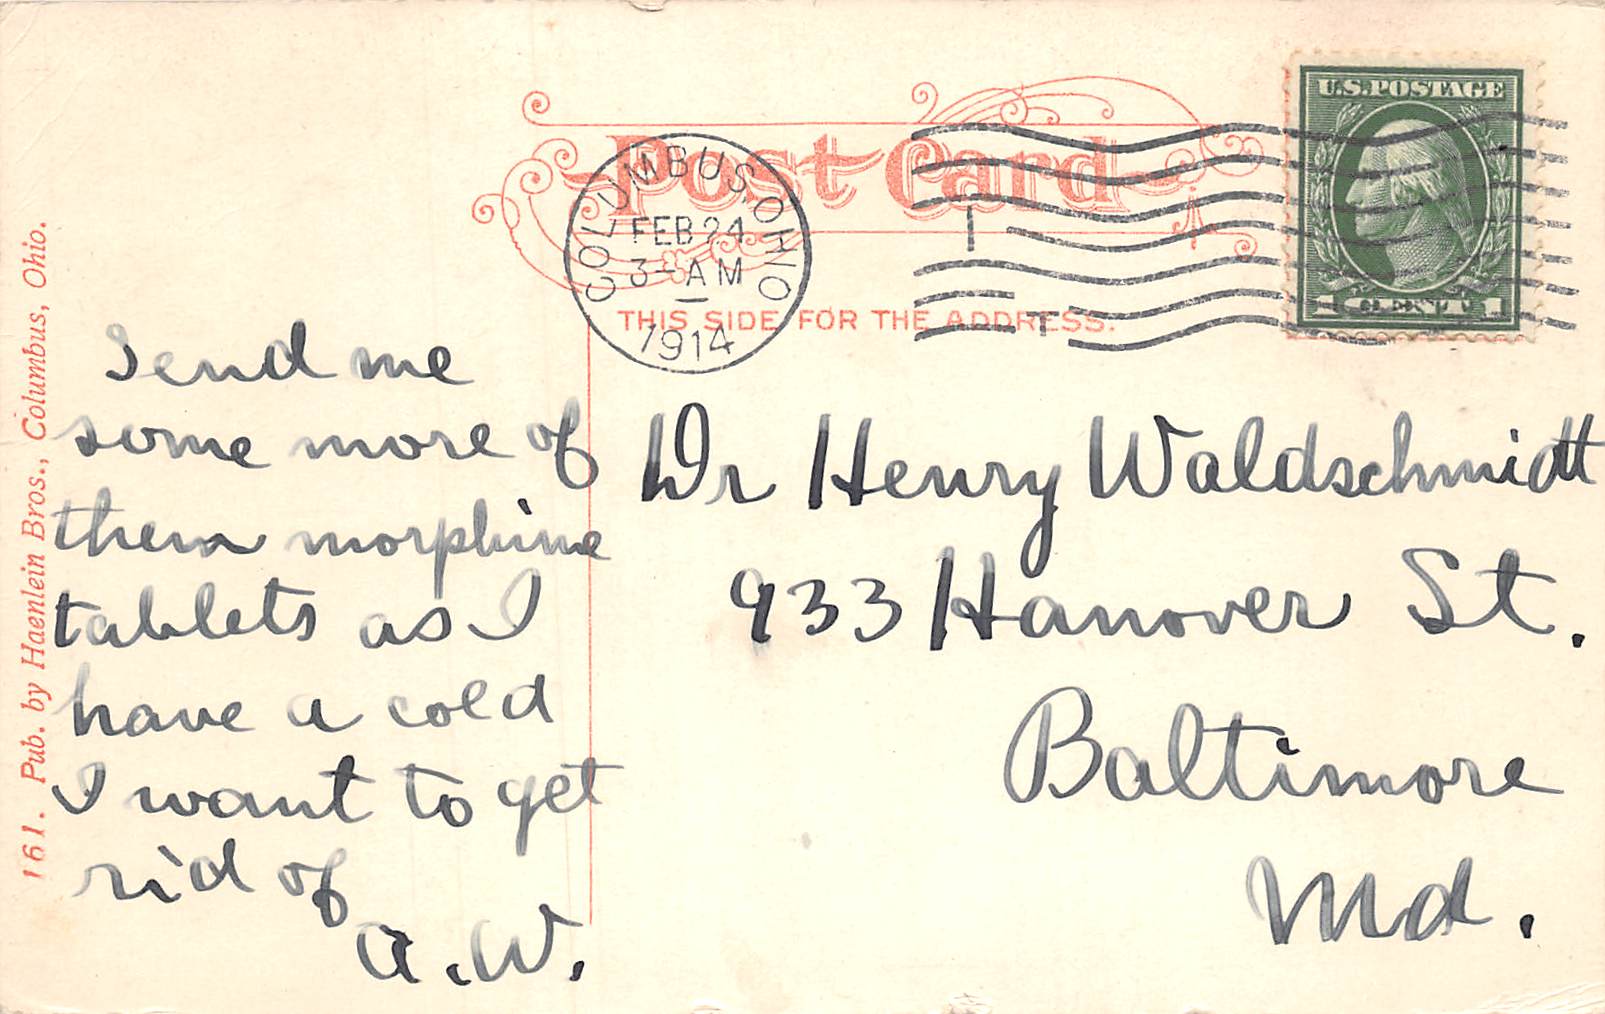 Post Card
THIS SIDE FOR THE ADDRESS.
COLUMBUS, OHIO
FEB 24
3- AM
1914
U.S. POSTAGE
1 1
161. Pub. by Haenlein Bros., Columbus, Ohio.
Send me
some more of
them morphine
tablets as I
have a cold
I want to get
rid of
A.W.
Dr Henry Waldschmidt
933 Hanover St.
Baltimore
Md.